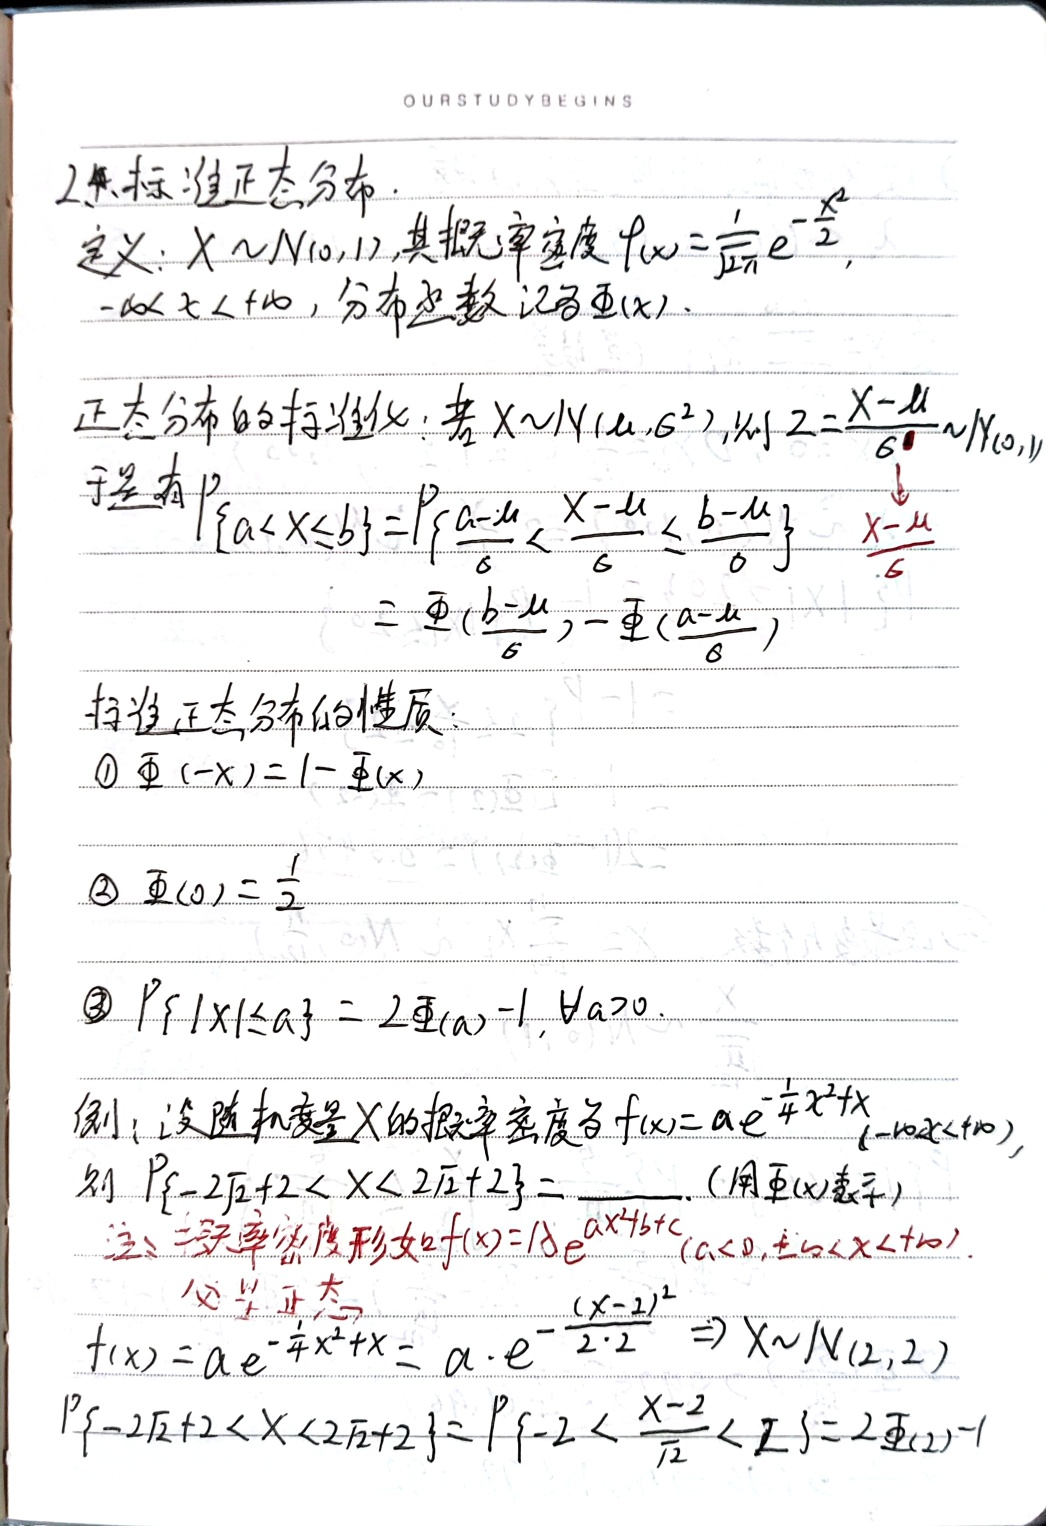 OURSTUDYBEGINS
2. 标准正态分布.
定义: X~N(0,1), 其概率密度 f(x)=1/√(2π) e^(-x²/2),
-∞<x<+∞, 分布函数记为Φ(x).
正态分布的标准化: 若X~N(μ,σ²), 则 Z=(X-μ)/σ ~N(0,1)
于是有 P{a<X≤b}=P{(a-μ)/σ < (X-μ)/σ ≤ (b-μ)/σ}
↓ (X-μ)/σ
=Φ((b-μ)/σ)-Φ((a-μ)/σ)
标准正态分布的性质:
① Φ(-x)=1-Φ(x)
② Φ(0)=1/2
③ P{|X|≤a}=2Φ(a)-1, ∀a>0.
例: 设随机变量X的概率密度为f(x)=ae^(-1/4 x²+x) (-∞<x<+∞),
则 P{-2√2+2<X<2√2+2}=____. (用Φ(x)表示)
注: 概率密度形如f(x)=e^(ax²+b+c) (a<0, -∞<x<+∞).
必是正态
f(x)=ae^(-1/4 x²+x)=a·e^(-(x-2)²/(2·2)) ⇒ X~N(2,2)
P{-2√2+2<X<2√2+2}=P{-2<(X-2)/√2<2}=2Φ(2)-1